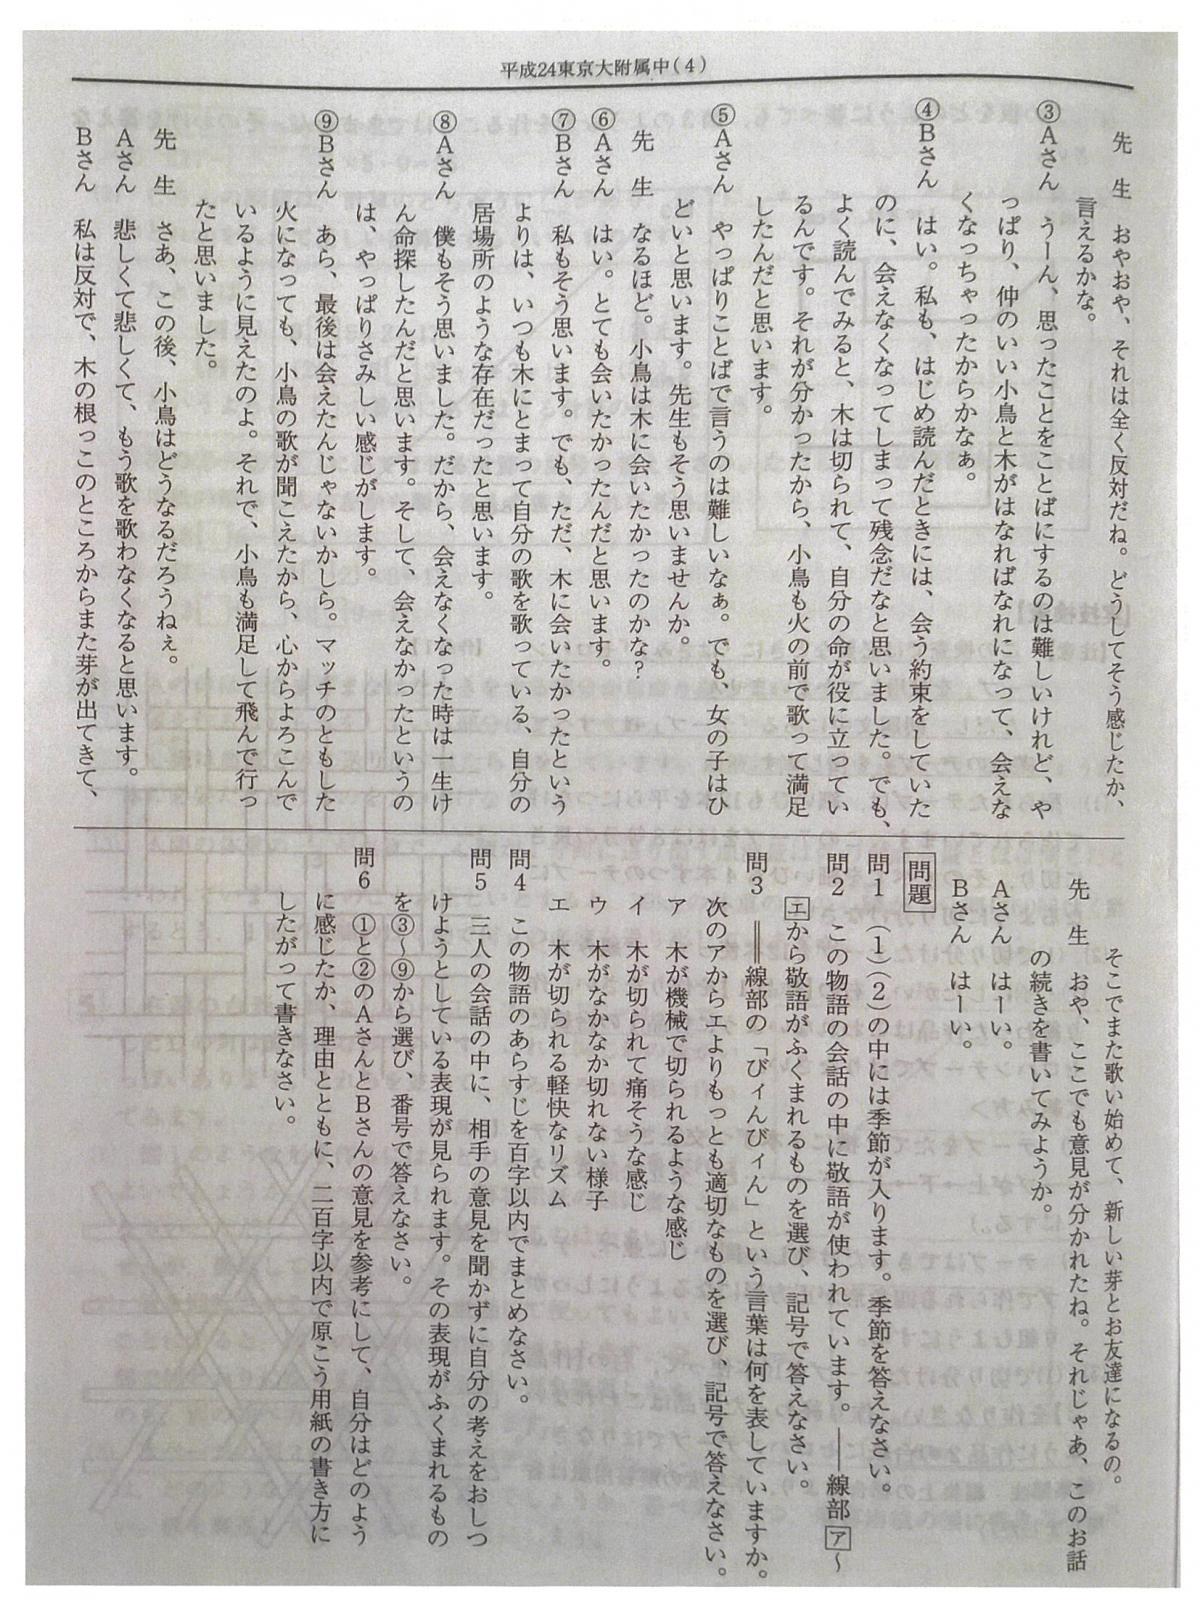 平成24東京大附属中(4)
先　生　おやおや、それは全く反対だね。どうしてそう感じたか、
言えるかな。
③Aさん　うーん、思ったことをことばにするのは難しいけれど、や
っぱり、仲のいい小鳥と木がはなればなれになって、会えな
くなっちゃったからかなぁ。
④Bさん　はい。私も、はじめ読んだときには、会う約束をしていた
のに、会えなくなってしまって残念だなと思いました。でも、
よく読んでみると、木は切られて、自分の命が役に立ってい
るんです。それが分かったから、小鳥も火の前で歌って満足
したんだと思います。
⑤Aさん　やっぱりことばで言うのは難しいなぁ。でも、女の子はひ
どいと思います。先生もそう思いませんか。
先　生　なるほど。小鳥は木に会いたかったのかな？
⑥Aさん　はい。とても会いたかったんだと思います。
⑦Bさん　私もそう思います。でも、ただ、木に会いたかったという
よりは、いつも木にとまって自分の歌を歌っている、自分の
居場所のような存在だったと思います。
⑧Aさん　僕もそう思いました。だから、会えなくなった時は一生け
ん命探したんだと思います。そして、会えなかったというの
は、やっぱりさみしい感じがします。
⑨Bさん　あら、最後は会えたんじゃないかしら。マッチのともした
火になっても、小鳥の歌が聞こえたから、心からよろこんで
いるように見えたのよ。それで、小鳥も満足して飛んで行っ
たと思いました。
先　生　さあ、この後、小鳥はどうなるだろうねぇ。
Aさん　悲しくて悲しくて、もう歌を歌わなくなると思います。
Bさん　私は反対で、木の根っこのところからまた芽が出てきて、
そこでまた歌い始めて、新しい芽とお友達になるの。
先　生　おや、ここでも意見が分かれたね。それじゃあ、このお話
の続きを書いてみようか。
Aさん　はーい。
Bさん　はーい。
問題
問1　(1)(2)の中には季節が入ります。季節を答えなさい。
問2　この物語の会話の中に敬語が使われています。――線部ア〜
エから敬語がふくまれるものを選び、記号で答えなさい。
問3　＝＝線部の「びィんびィん」という言葉は何を表していますか。
次のアからエよりもっとも適切なものを選び、記号で答えなさい。
ア　木が機械で切られるような感じ
イ　木が切られて痛そうな感じ
ウ　木がなかなか切れない様子
エ　木が切られる軽快なリズム
問4　この物語のあらすじを百字以内でまとめなさい。
問5　三人の会話の中に、相手の意見を聞かずに自分の考えをおしつ
けようとしている表現が見られます。その表現がふくまれるもの
を③〜⑨から選び、番号で答えなさい。
問6　①と②のAさんとBさんの意見を参考にして、自分はどのよう
に感じたか、理由とともに、二百字以内で原こう用紙の書き方に
したがって書きなさい。